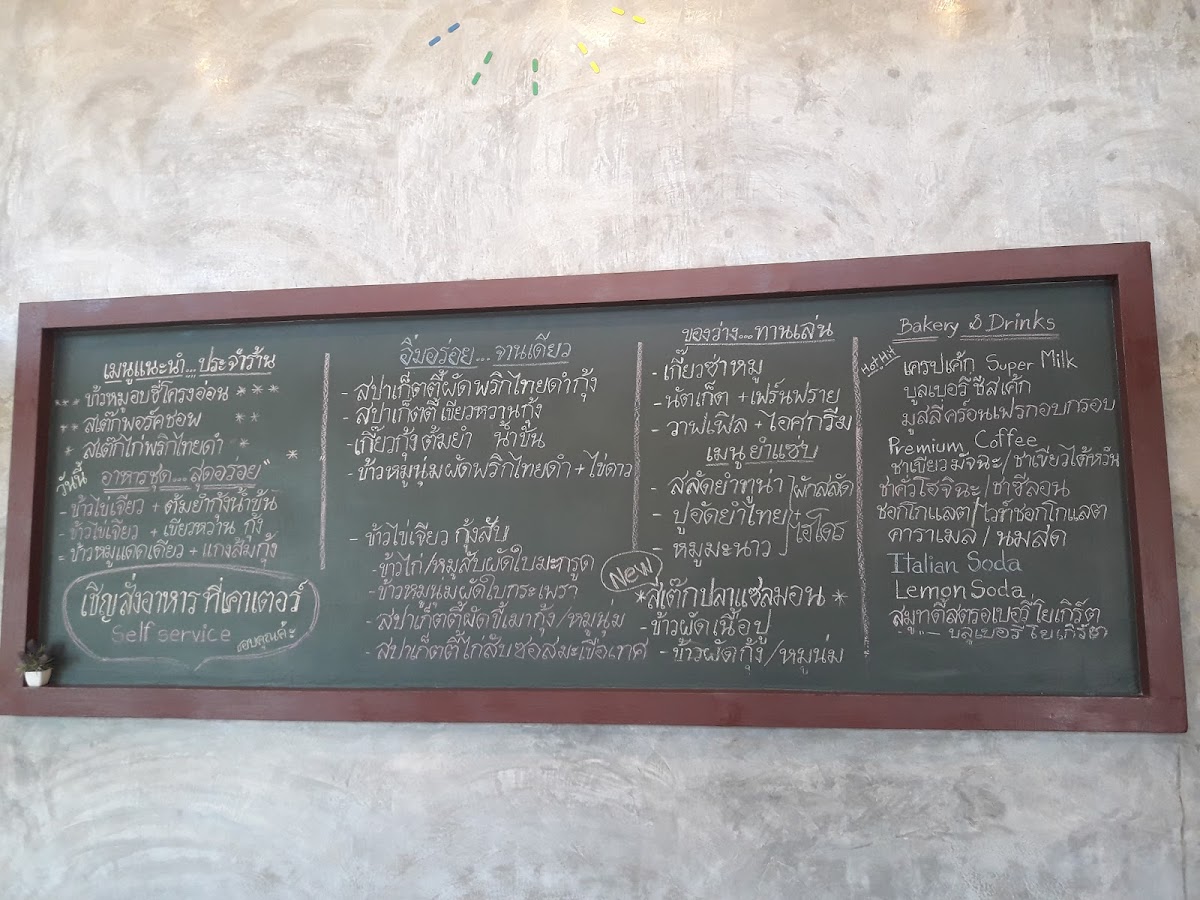 เมนูแนะนำ...ประจำร้าน
*** ข้าวหมูอบซี่โครงอ่อน ***
** สเต๊กพอร์คชอพ **
* สเต๊กไก่พริกไทยดำ *
วันนี้ อาหารชุด...สุดอร่อย"
- ข้าวไข่เจียว + ต้มยำกุ้งน้ำข้น
- ข้าวไข่เจียว + เขียวหวาน กุ้ง
= ข้าวหมูแดดเดียว + แกงส้มกุ้ง
เชิญสั่งอาหารที่เคาเตอร์
Self service
ขอบคุณค่ะ
อิ่มอร่อย...จานเดียว
- สปาเก็ตตี้ผัดพริกไทยดำกุ้ง
- สปาเก็ตตี้เขียวหวานกุ้ง
- เกี๊ยวกุ้งต้มยำ น้ำข้น
- ข้าวหมูนุ่มผัดพริกไทยดำ + ไข่ดาว
- ข้าวไข่เจียว กุ้งสับ
- ข้าวไก่/หมูสับผัดใบมะกรูด
- ข้าวหมูนุ่มผัดใบกระเพรา
- สปาเก็ตตี้ผัดขี้เมากุ้ง/หมูนุ่ม
- สปาเก็ตตี้ไก่สับซอสมะเขือเทศ
ของว่าง...ทานเล่น
- เกี๊ยวซ่าหมู
- นัตเก็ต + เฟร้นฟราย
- วาฟเฟิล + ไอศกรีม
เมนูยำแซ่บ
- สลัดยำทูน่า
- ปูอัดยำไทย
- หมูมะนาว
ผักสลัด
+
ไฮโดร
New
*สเต๊กปลาแซลมอน *
- ข้าวผัดเนื้อปู
- ข้าวผัดกุ้ง/หมูนุ่ม
Bakery & Drinks
Hot Hit
เครปเค้ก Super Milk
บูลเบอรี่ชีสเค้ก
มูสลี่คร้อนเฟรกอบกรอบ
Premium Coffee
ชาเขียวมัจฉะ/ชาเขียวไต้หวัน
ชาคั่วโฮจิฉะ/ชาซีลอน
ชอกโกแลต/ไวท์ชอกโกแลต
คาราเมล/นมสด
Italian Soda
Lemon Soda
สมูทตี้สตรอเบอรี่โยเกิร์ต
"— บลูเบอรี่โยเกิร์ต